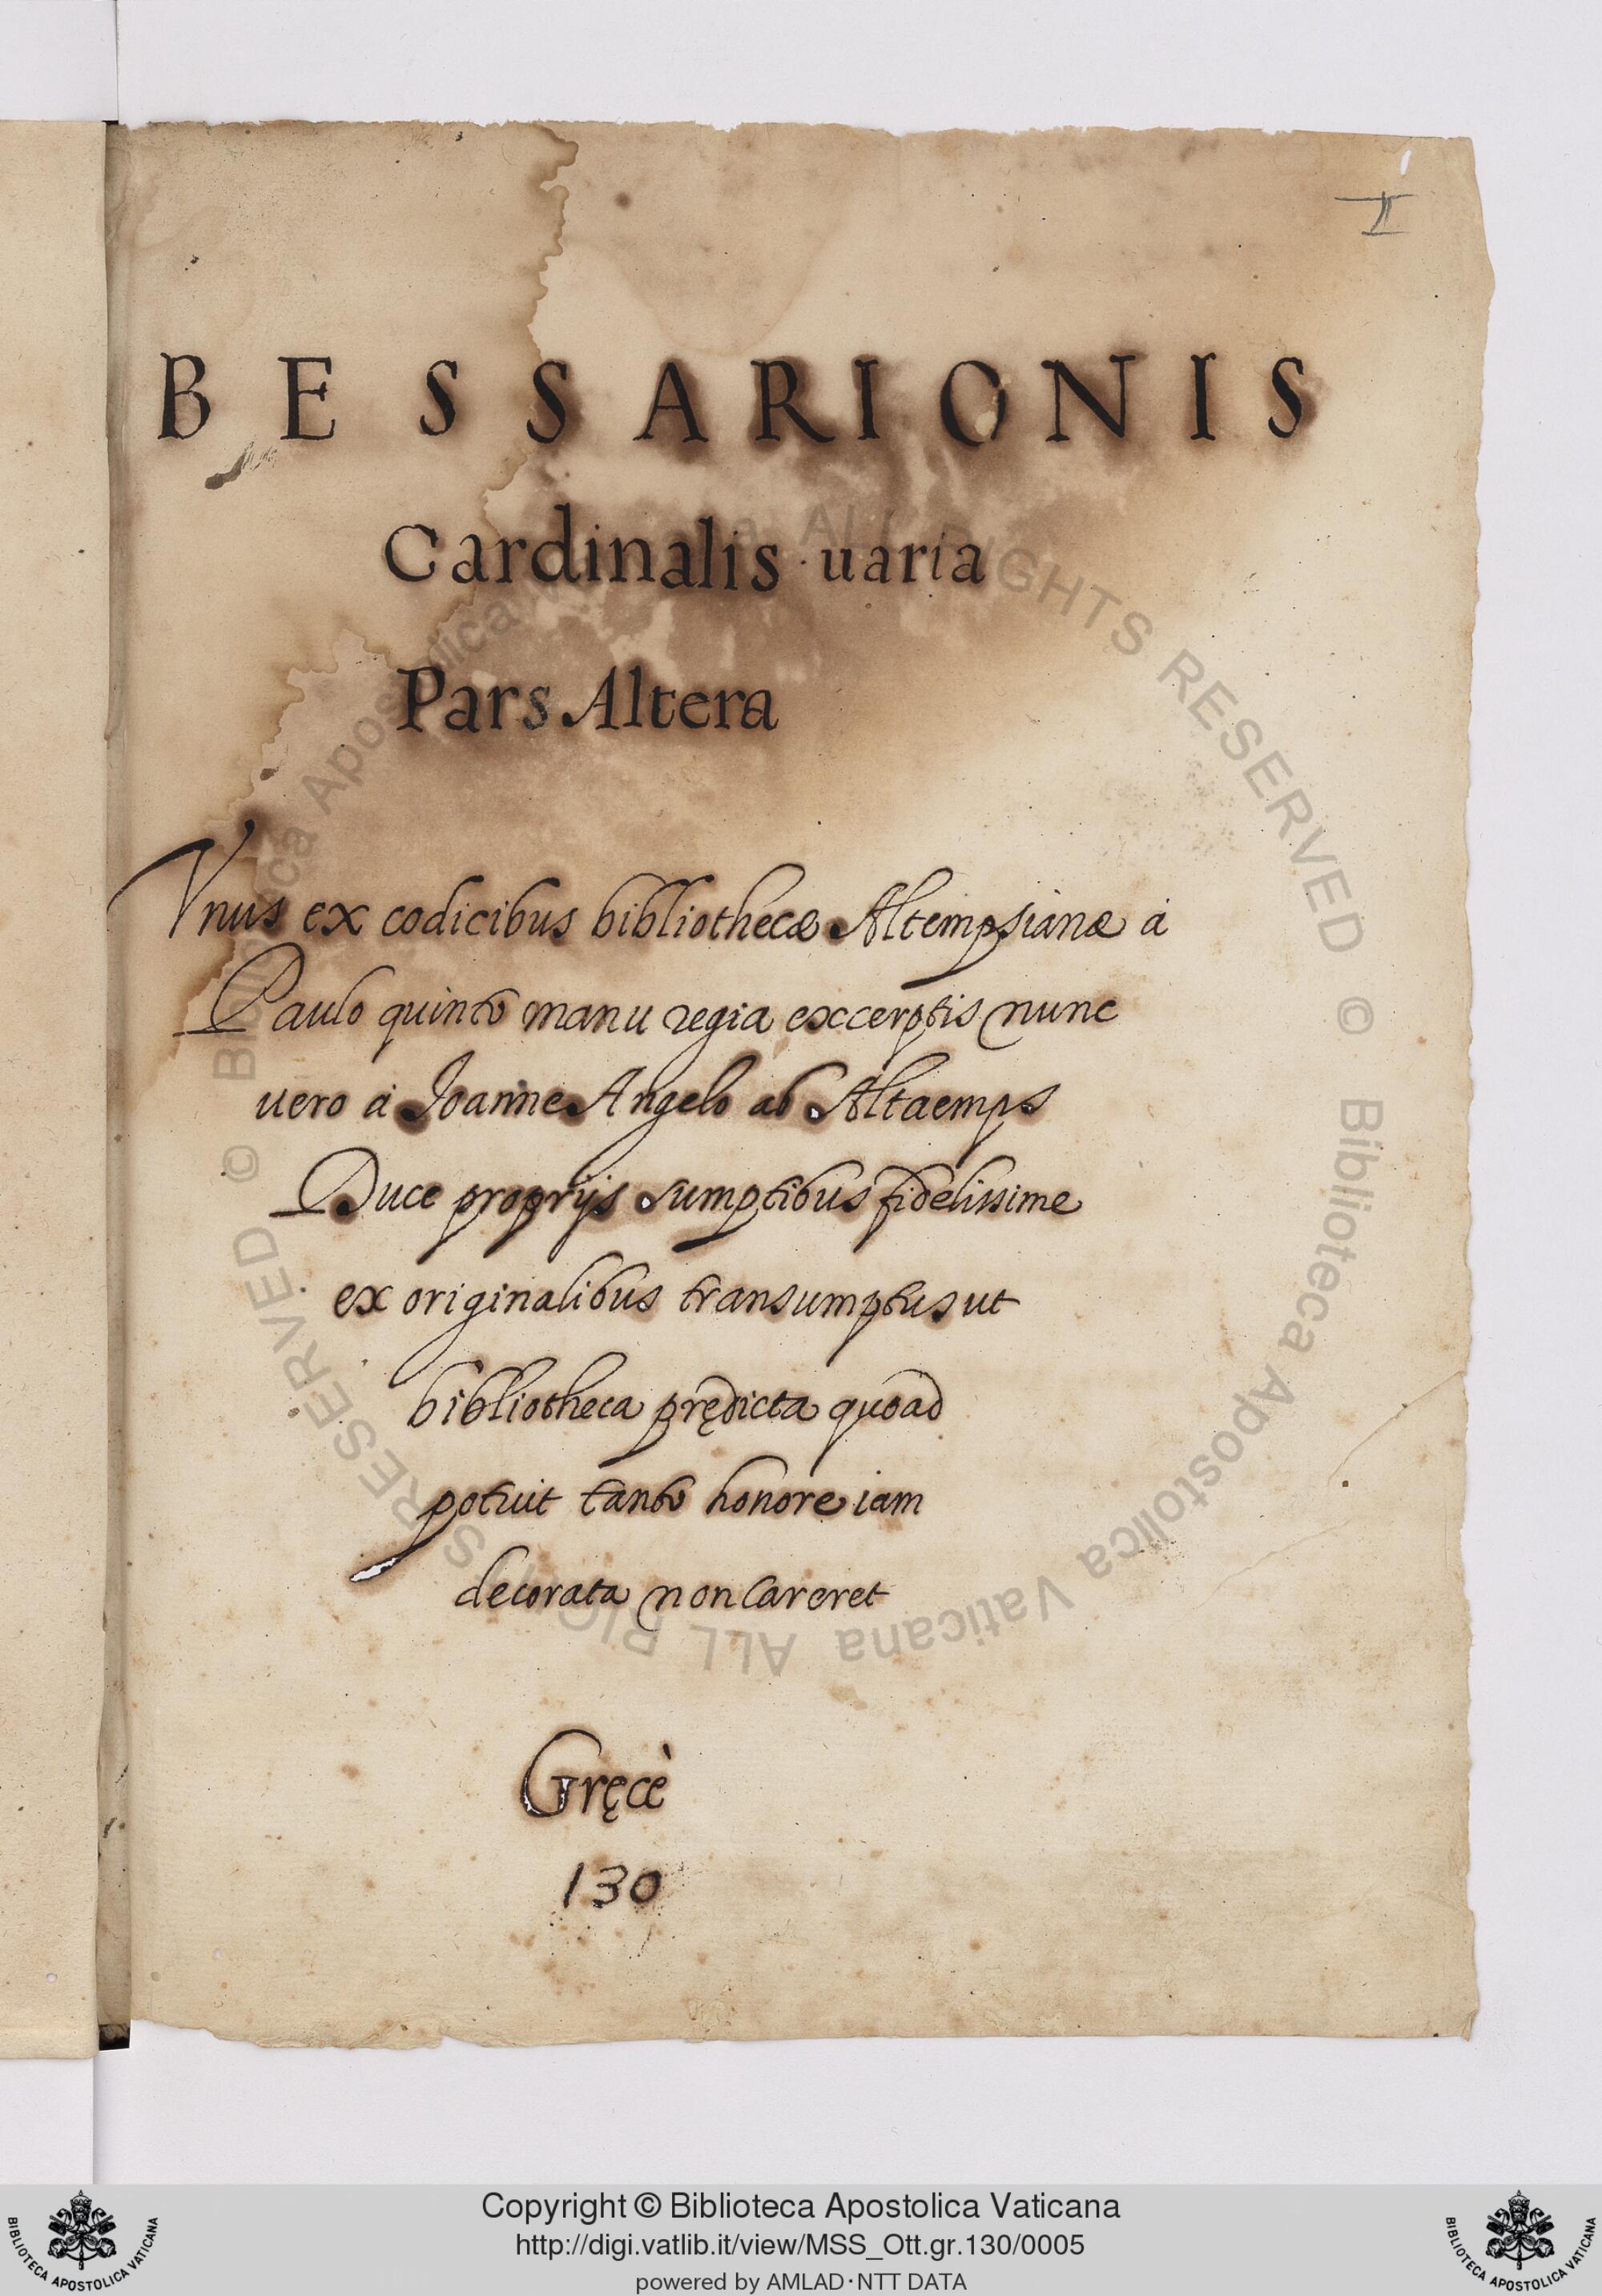 II
BESSARIONIS
Cardinalis uaria
Pars Altera
Vnus ex codicibus bibliothecæ Altempsianæ à
Paulo quinto manu regia excerptis nunc
uero à Joanne Angelo ab Altaemps
Duce proprijs sumptibus fidelissime
ex originalibus transumptus ut
bibliotheca prędicta quoad
potuit tanto honore iam
decorata non Careret
Gręcè
130
© Biblioteca Apostolica Vaticana ALL RIGHTS RESERVED © Biblioteca Apostolica Vaticana ALL RIGHTS RESERVED
Copyright © Biblioteca Apostolica Vaticana
http://digi.vatlib.it/view/MSS_Ott.gr.130/0005
powered by AMLAD·NTT DATA
BIBLIOTECA APOSTOLICA VATICANA
BIBLIOTECA APOSTOLICA VATICANA